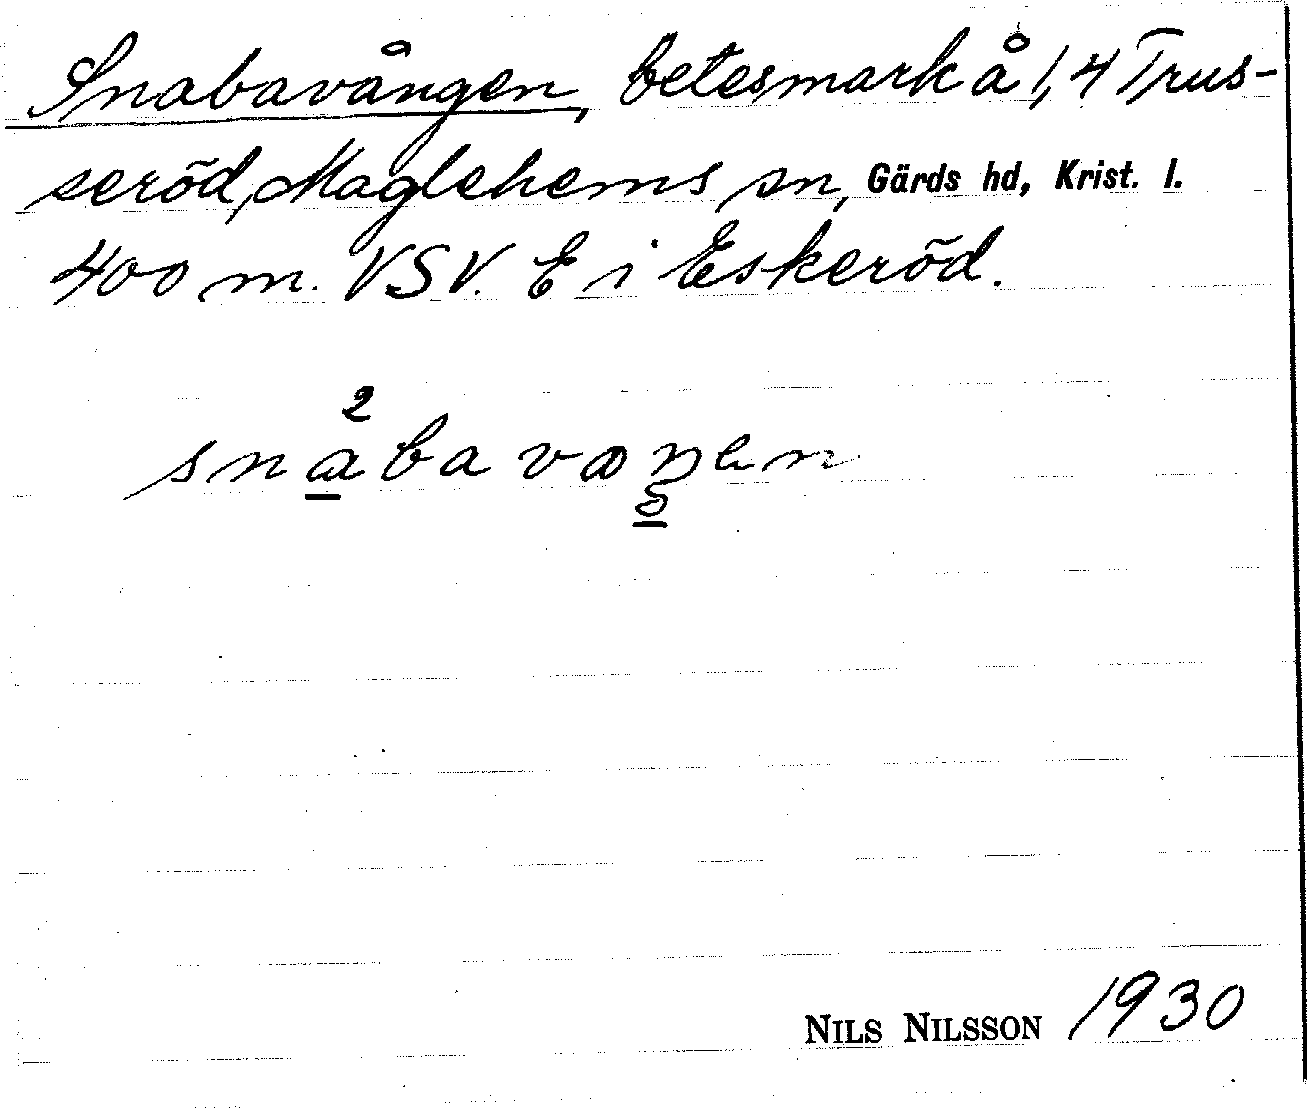 Snabavången, betesmark å 1,4 Trus-
seröd, Maglehems sn, Gärds hd, Krist. l.
400 m. VSV. E i Eskeröd.
2
snabavaŋen
NILS NILSSON 1930